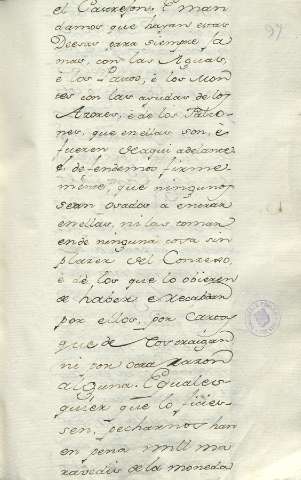 el Carrejon, E man
damos que hayan estas
Deesas para siempre ja
mas, con las Aguas,
é los, é los Mon
tes con las ayudas de los
Azores, é de los Falco
nes, que en ellas son, e
fueren de aqui adelante
é defendemos firme
mente, que ningunos
sean osados a entrar
en ellas, ni las tomar
ende ninguna cosa sin
plazer del Conzexo
é de los que lo obieren
de haber e recabdar
por ellos, por cartas
que de Nos traigan
ni por otra razon
alguna. E quales
quier que lo ficies
sen, pecharnos han
en pena mill ma
ravedis de la moneda